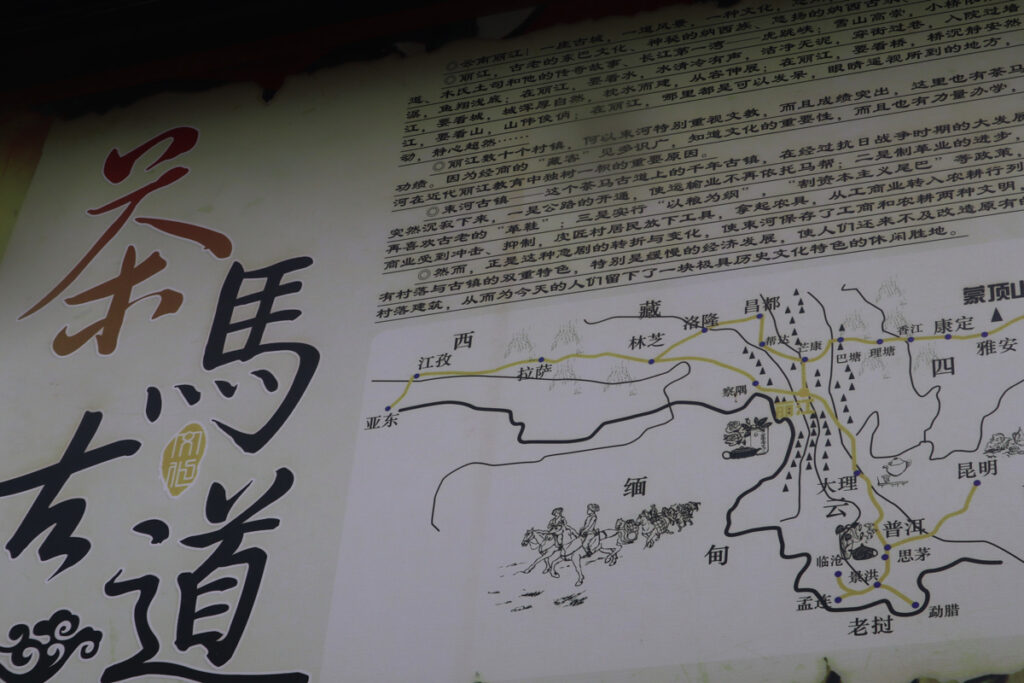 茶
馬
古
道
文化
◎云南丽江！一座古城，一道风景，一种文化，
◎丽江，古老的东巴文化、神秘的纳西族、悠扬的纳西古乐、
道、木氏土司和他的传奇故事、长江第一湾、虎跳峡；雪山高崇，小桥
湛，鱼翔浅底；在丽江，要看水，水清冷有声，洁净无泥，穿街过巷，入院过墙
江，要看城，城浑厚自然，枕水而建，从容伸展；在丽江，要看桥，桥沉静安然
江，要看山，山伟俊俏；在丽江，那里都是可以发呆，眼睛遥视所到的地方，
动，静心超然……
◎丽江数十个村镇，何以束河特别重视文教，而且成绩突出，这里也有茶马
功绩。因为经商的“藏客”见多识广，知道文化的重要性，而且也有力量办学，
河在近代丽江教育中独树一帜的重要原因。
◎束河古镇——这个茶马古道上的千年古镇，在经过抗日战争时期的大发展
突然沉寂下来，一是公路的开通，使运输业不再依托马帮；二是制革业的进步，
再喜欢古老的“革鞋”；三是实行“以粮为纲”，“割资本主义尾巴”等政策，
商业受到冲击、抑制，皮匠村居民放下工具，拿起农具，从工商业转入农耕行列
◎然而，正是这种悲剧的转折与变化，使束河保存了工商和农耕两种文明，
有村落与古镇的双重特色，特别是缓慢的经济发展，使人们还来不及改造原有的
村落建筑，从而为今天的人们留下了一块极具历史文化特色的休闲胜地。
蒙顶山
西
藏
昌都
洛隆
江孜
拉萨
林芝
帮达
芒康
巴塘
理塘
香江
康定
雅安
四
亚东
察隅
丽江
缅
甸
大理
云
昆明
普洱
思茅
临沧
景洪
孟连
勐腊
老挝